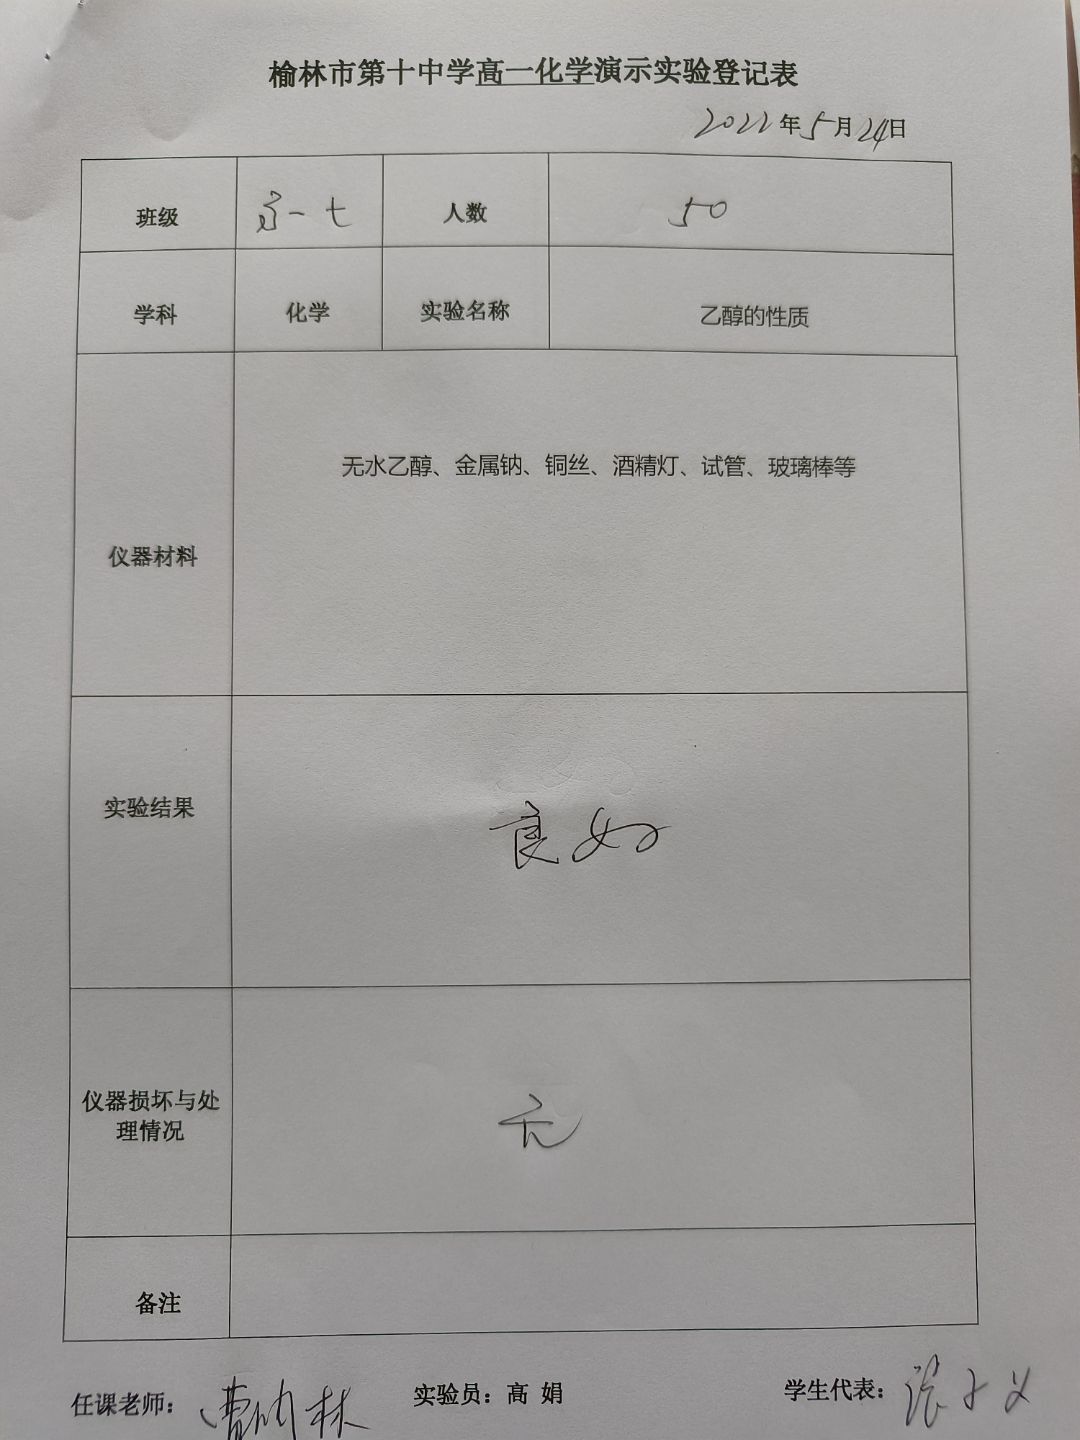 榆林市第十中学高一化学演示实验登记表
2022年5月24日
班级 高一七 人数 50
学科 化学 实验名称 乙醇的性质
仪器材料 无水乙醇、金属钠、铜丝、酒精灯、试管、玻璃棒等
实验结果 良好
仪器损坏与处
理情况 无
备注
任课老师： 实验员：高 娟 学生代表：